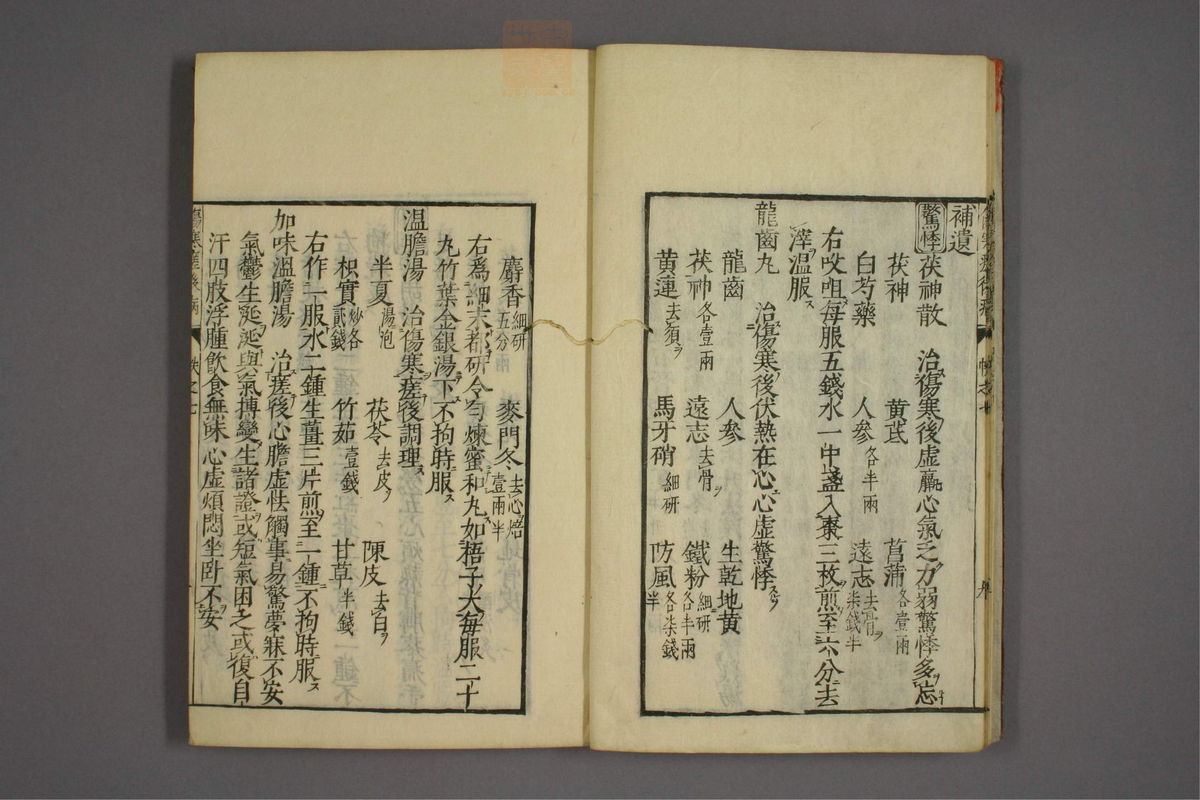 補遺
驚悸 茯神散 治傷寒後虛羸心氣乏力弱驚悸多忘
茯神 黃芪 菖蒲各壹兩
白芍藥 人參各半兩 遠志去骨ヲ柒錢半
右㕮咀每服五錢水一中盞入棗三枚煎至六分去
滓溫服
龍齒丸 治傷寒後伏熱在心心虛驚悸
龍齒 人參 生乾地黃
茯神各壹兩 遠志去骨ヲ 鐵粉細研各半兩
黃連去須ヲ 馬牙硝細研 防風各柒錢半
麝香細研五分 麥門冬去心焙壹兩半
右爲細末都研令勻煉蜜和丸如梧子大每服二十
丸竹葉金銀湯下不拘時服
溫膽湯 治傷寒瘥後調理
半夏湯泡 茯苓去皮ヲ 陳皮去白ヲ
枳實炒各貳錢 竹茹壹錢 甘草半錢
右作一服水二鍾生薑三片煎至一鍾不拘時服
加味溫膽湯 治瘥後心膽虛怯觸事易驚夢寐不安
氣鬱生涎涎與氣搏變生諸證或短氣困乏或復自
汗四肢浮腫飲食無味心虛煩悶坐臥不安